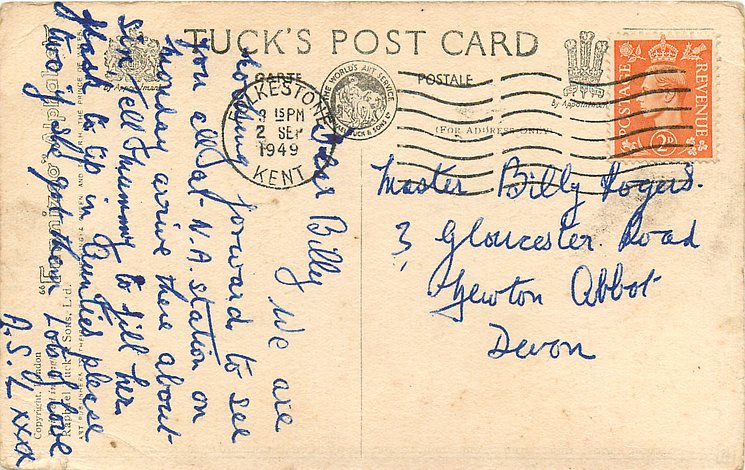 TUCK'S POST CARD
CARTE POSTALE
(FOR ADDRESS ONLY)
By Appointment
By Appointment
THE WORLD'S ART SERVICE
FOLKESTONE
3 15PM
2 SEP
1949
KENT
POSTAGE
REVENUE
2D
Master Billy Rogers.
3, Gloucester Road
Newton Abbot
Devon
Dear Billy
We are
looking forward to see
you all at N.A. station on
Monday arrive there about
six. Tell Mummy to fill her
flask to tip in Aunties please
two if she got them. Lots of love
A.S.L xxx
Raphael Tuck & Sons, Ltd.
Copyright, London